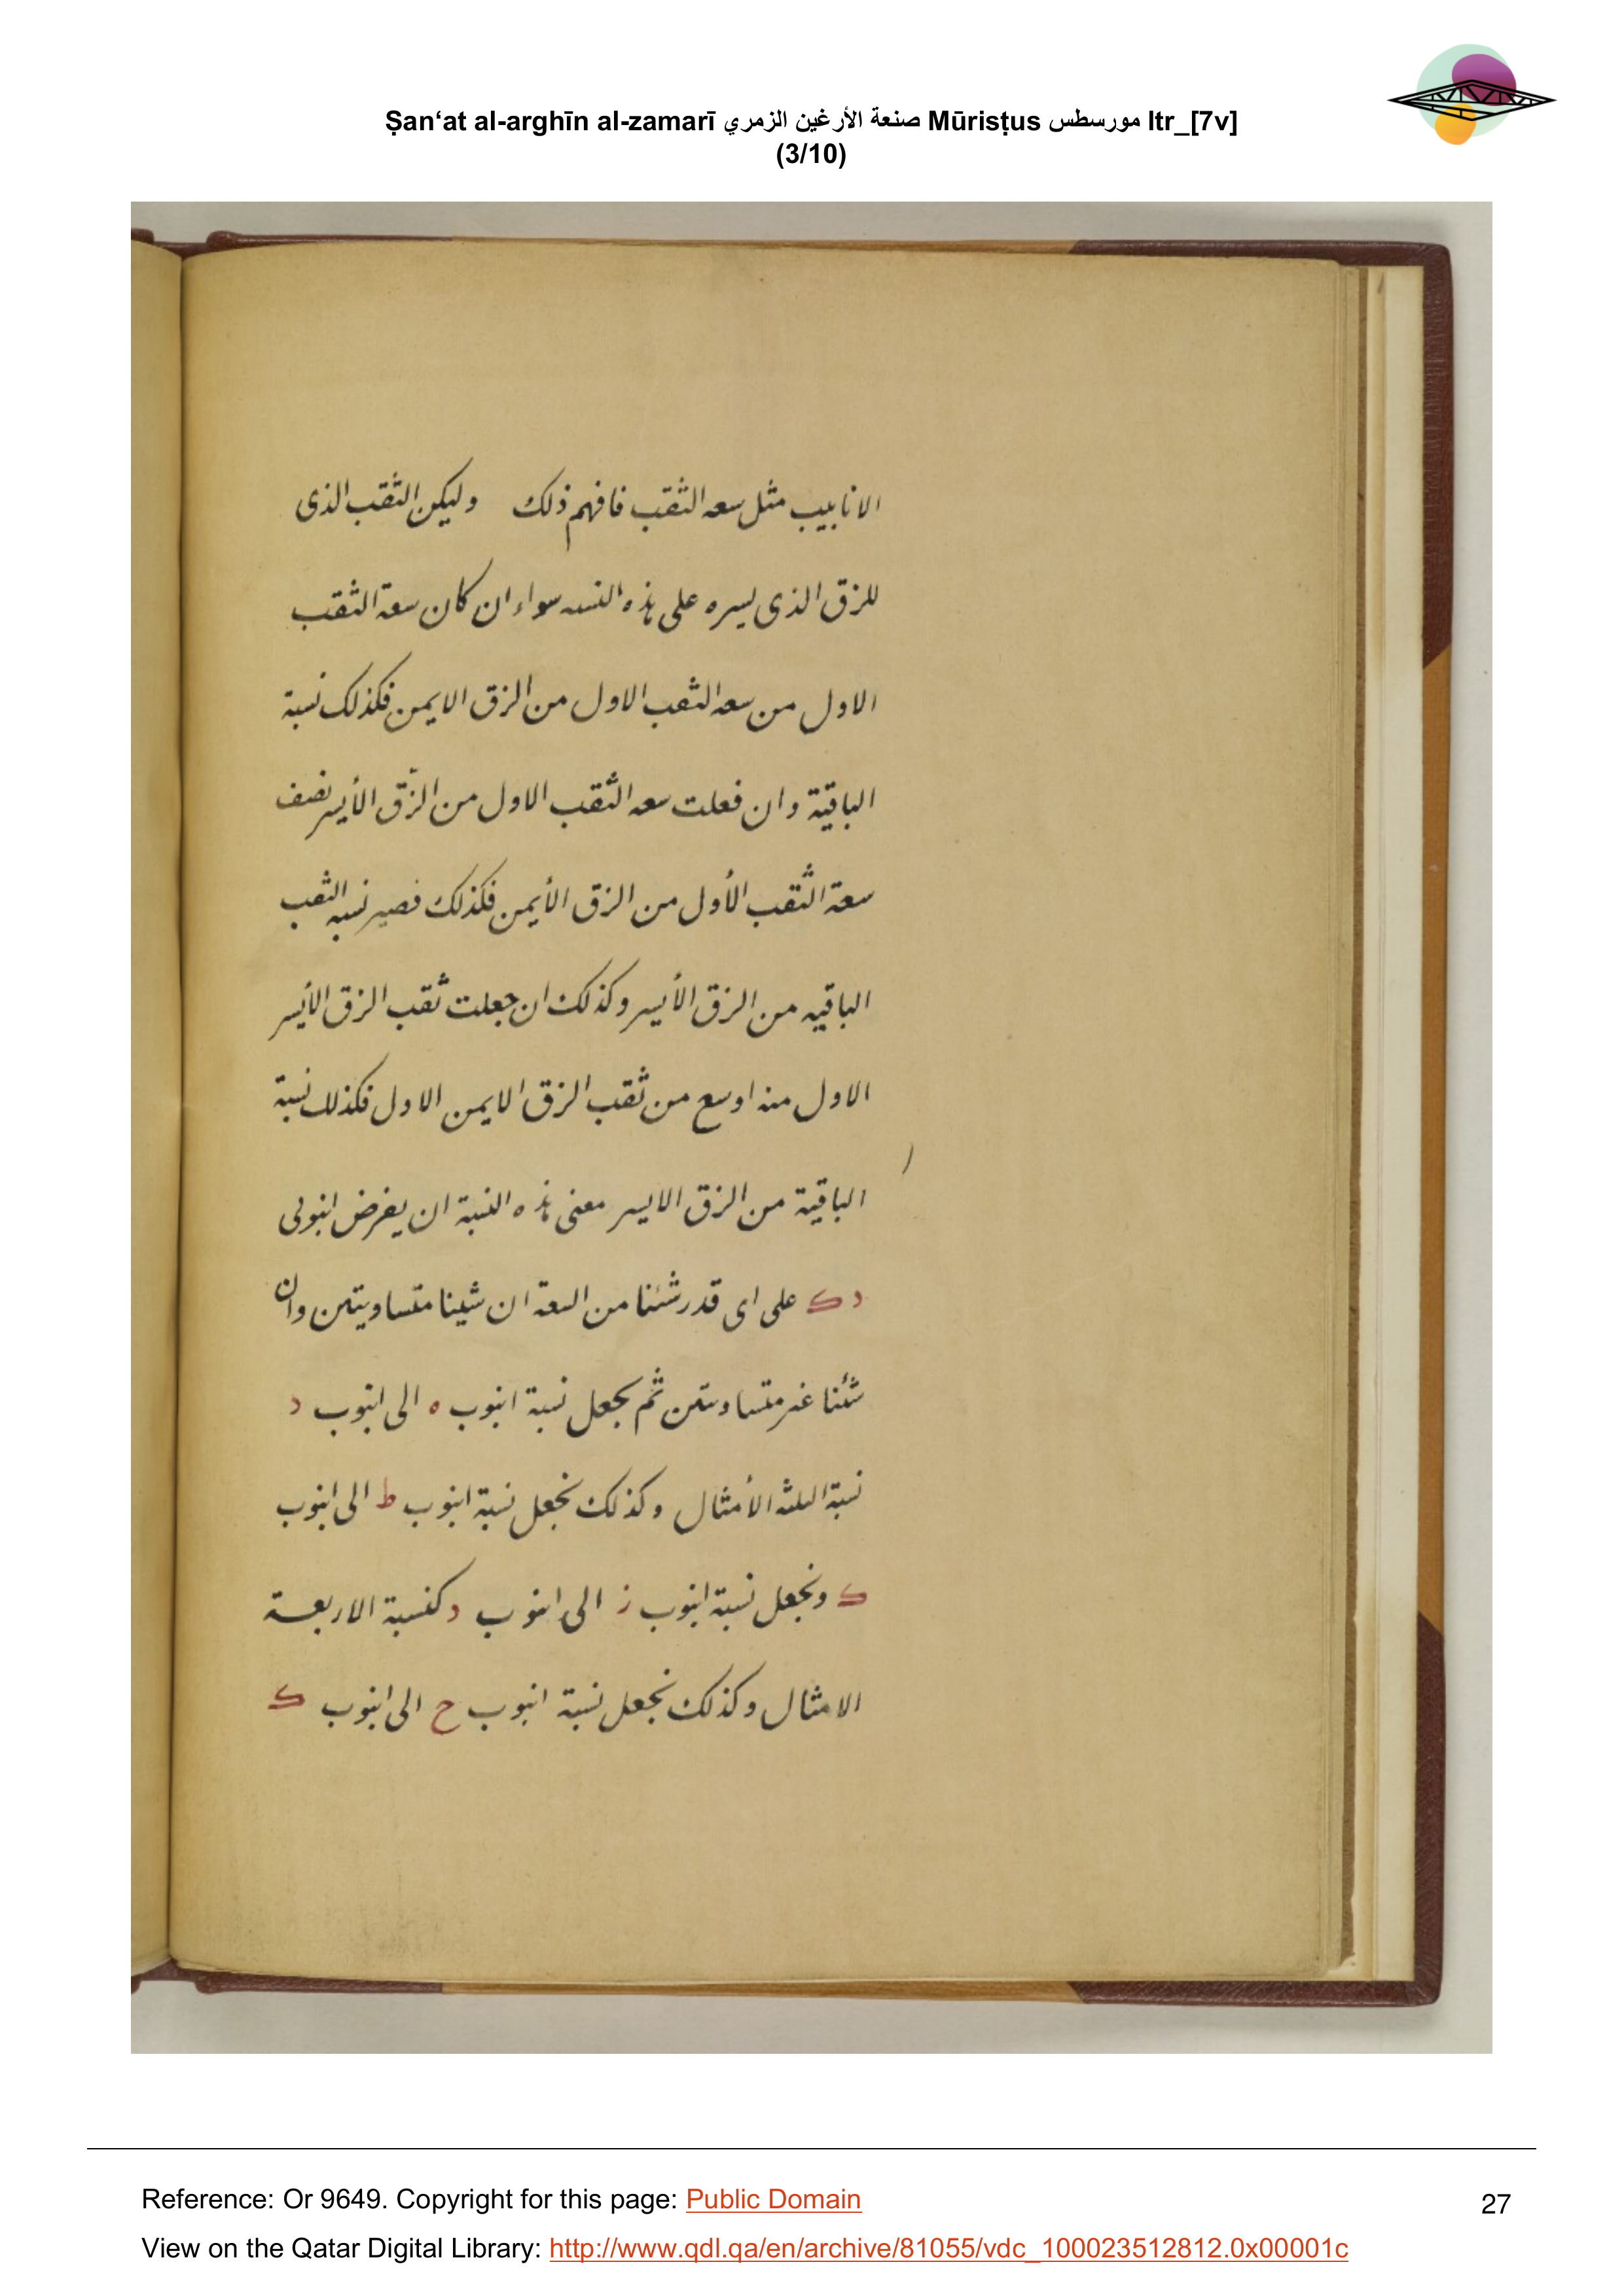 Ṣan‘at al-arghīn al-zamarī صنعة الأرغين الزمري Mūrisṭus مورسطس ltr_[7v]
(3/10)
الانابيب مثل سعه الثقب فافهم ذلك وليكن الثقب الذى
للزق الذى يسره على هذه النسبه سواء ان كان سعة الثقب
الاول من سعه الثقب الاول من الزق الايمن فكذلك نسبة
الباقية وان فعلت سعه الثقب الاول من الزّق الأيسر نصف
سعة الثقب الأول من الزق الأيمن فكذلك فصير نسبه الثقب
الباقيه من الزق الأيسر وكذلك ان جعلت ثقب الزق الأيسر
الاول منه اوسع من ثقب الزق الايمن الاول فكذلك نسبة
الباقية من الزق الايسر معنى هذه النسبة ان يفرض انبوبى
د ك على اى قدر شئنا من السعة ان شينا متساويتين وان
شئنا غير متساويتين ثم يجعل نسبة انبوب ه الى انبوب د
نسبة الثلثه الأمثال وكذلك نجعل نسبة انبوب ط الى انبوب
ك ونجعل نسبة انبوب ز الى انبوب د كنسبة الاربعة
الامثال وكذلك نجعل نسبة انبوب ح الى انبوب ك
Reference: Or 9649. Copyright for this page: Public Domain
27
View on the Qatar Digital Library: http://www.qdl.qa/en/archive/81055/vdc_100023512812.0x00001c